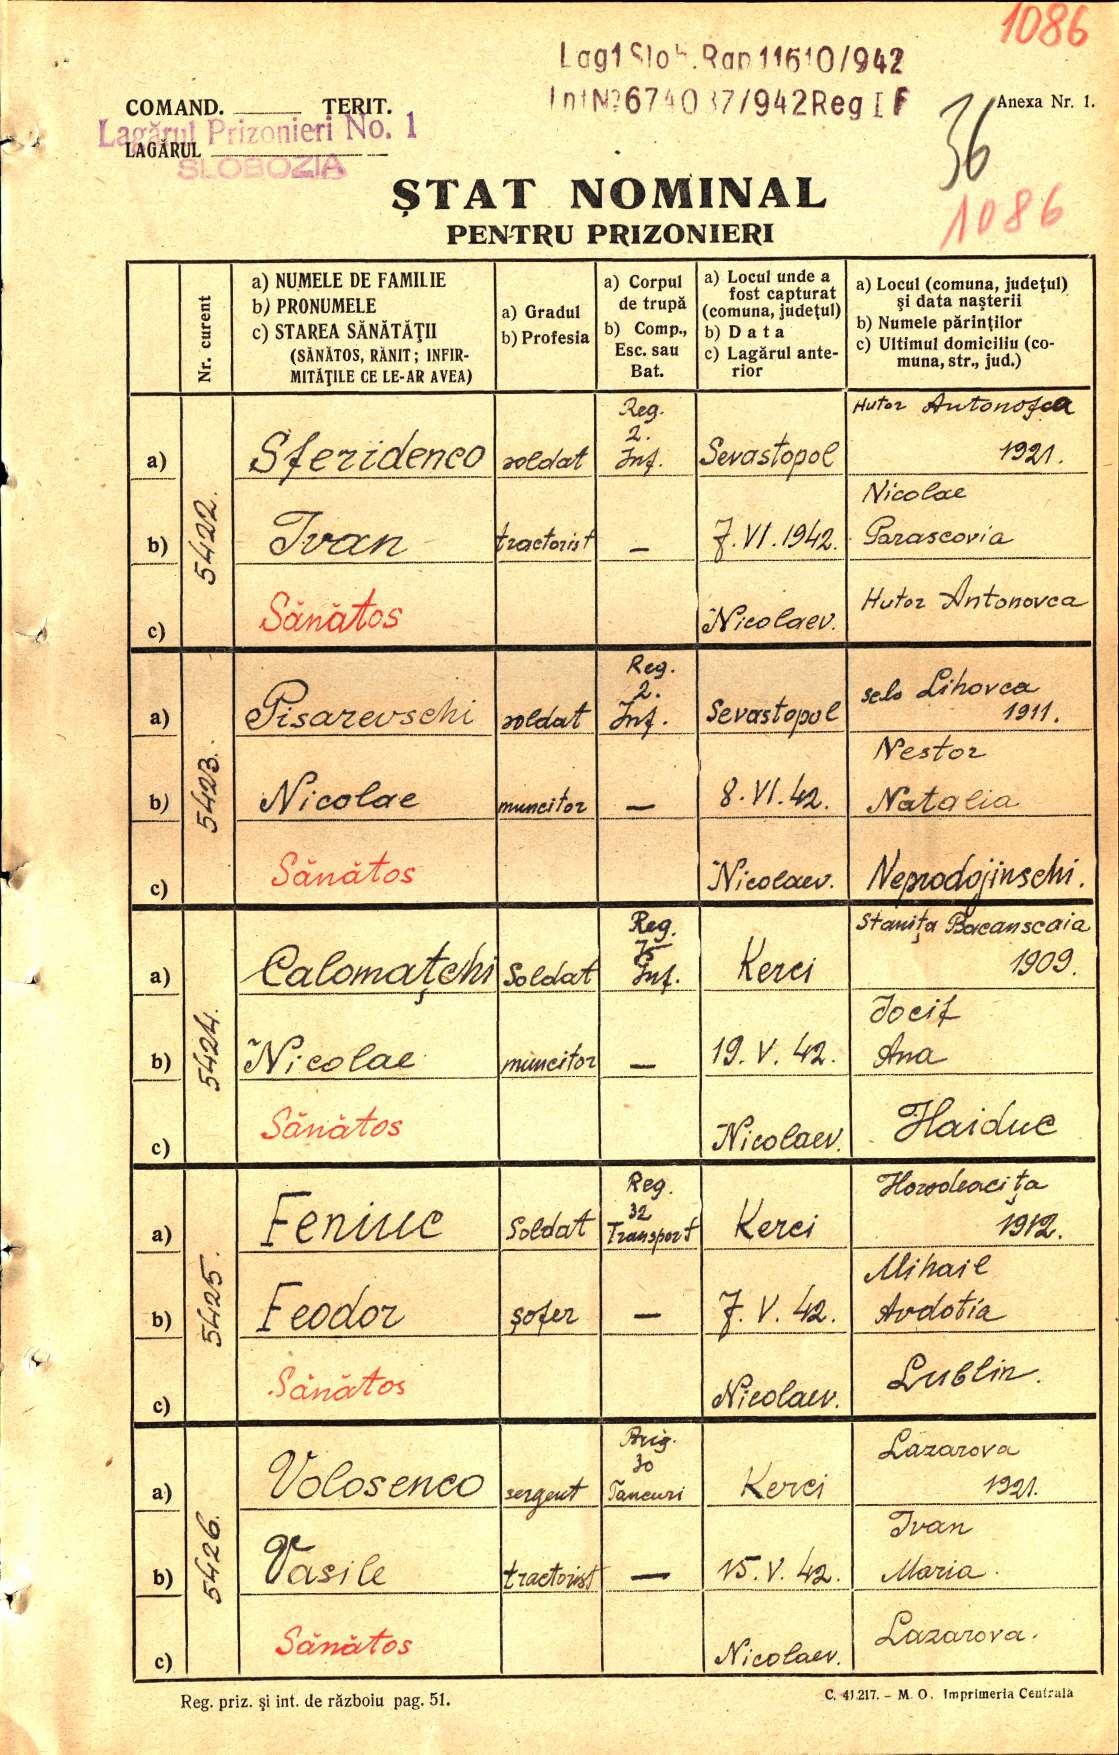 1086
Lag 1 Slob. Rap 11610/942
Int № 674037/942 Reg I F
COMAND. ______ TERIT.
Anexa Nr. 1.
Lagărul Prizonieri No. 1
LAGĂRUL
SLOBOZIA
36
1086
ȘTAT NOMINAL
PENTRU PRIZONIERI
Nr. curent
a) NUMELE DE FAMILIE
b) PRONUMELE
c) STAREA SĂNĂTĂȚII
(SĂNĂTOS, RĂNIT; INFIR-
MITĂȚILE CE LE-AR AVEA)
a) Gradul
b) Profesia
a) Corpul
de trupă
b) Comp.,
Esc. sau
Bat.
a) Locul unde a
fost capturat
(comuna, județul)
b) Data
c) Lagărul ante-
rior
a) Locul (comuna, județul)
și data nașterii
b) Numele părinților
c) Ultimul domiciliu (co-
muna, str., jud.)
5422.
a) Sferidenco soldat Reg. 2. Inf. Sevastopol Hutor Antonofca 1921.
b) Ivan tractorist — 7.VI.1942. Nicolae Parascovia
c) Sănătos Nicolaev. Hutor Antonovca
5423.
a) Pisarevschi soldat Reg. 2. Inf. Sevastopol selo Lihovca 1911.
b) Nicolae muncitor — 8.VI.42. Nestor Natalia
c) Sănătos Nicolaev. Neprodojinschi.
5424.
a) Calomațchi Soldat Reg. 75 Inf. Kerci Stanița Bacanscaia 1909.
b) Nicolae muncitor — 19.V.42. Iocif Ana
c) Sănătos Nicolaev. Haiduc
5425.
a) Feniuc Soldat Reg. 32 Transport Kerci Horodeacița 1912.
b) Feodor șofer — 7.V.42. Mihail Avdotia
c) Sănătos Nicolaev. Lublin.
5426.
a) Volosenco sergent Brig. 30 Tancuri Kerci Lazarova 1921.
b) Vasile tractorist — 15.V.42. Ivan Maria.
c) Sănătos Nicolaev. Lazarova.
Reg. priz. și int. de războiu pag. 51.
C. 41.217. – M. O. Imprimeria Centrală